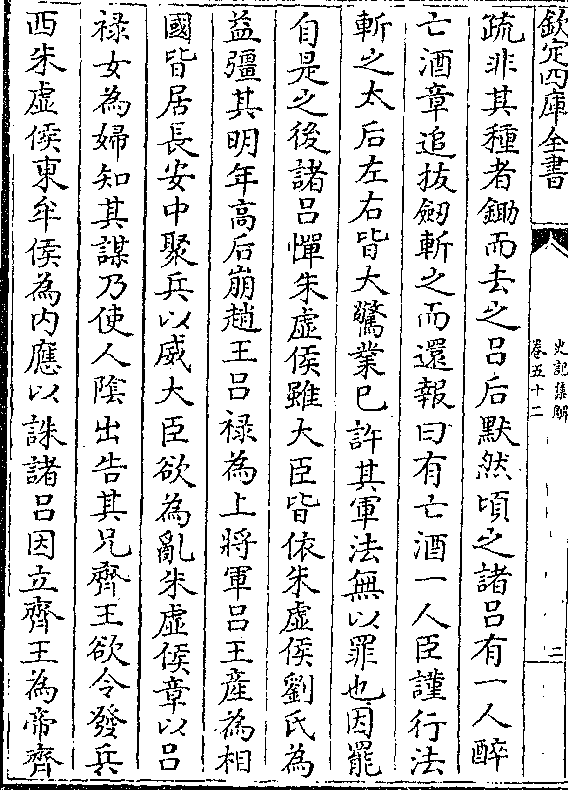 欽定四庫全書
史記集解
卷五十二
二
疏非其種者鋤而去之吕后默然頃之諸吕有一人醉
亡酒章追拔劒斬之而還報曰有亡酒一人臣謹行法
斬之太后左右皆大驚業已許其軍法無以罪也因罷
自是之後諸吕憚朱虛侯雖大臣皆依朱虛侯劉氏為
益彊其明年高后崩趙王吕禄為上將軍吕王產為相
國皆居長安中聚兵以威大臣欲為亂朱虛侯章以吕
禄女為婦知其謀乃使人陰出告其兄齊王欲令發兵
西朱虛侯東牟侯為内應以誅諸吕因立齊王為帝齊